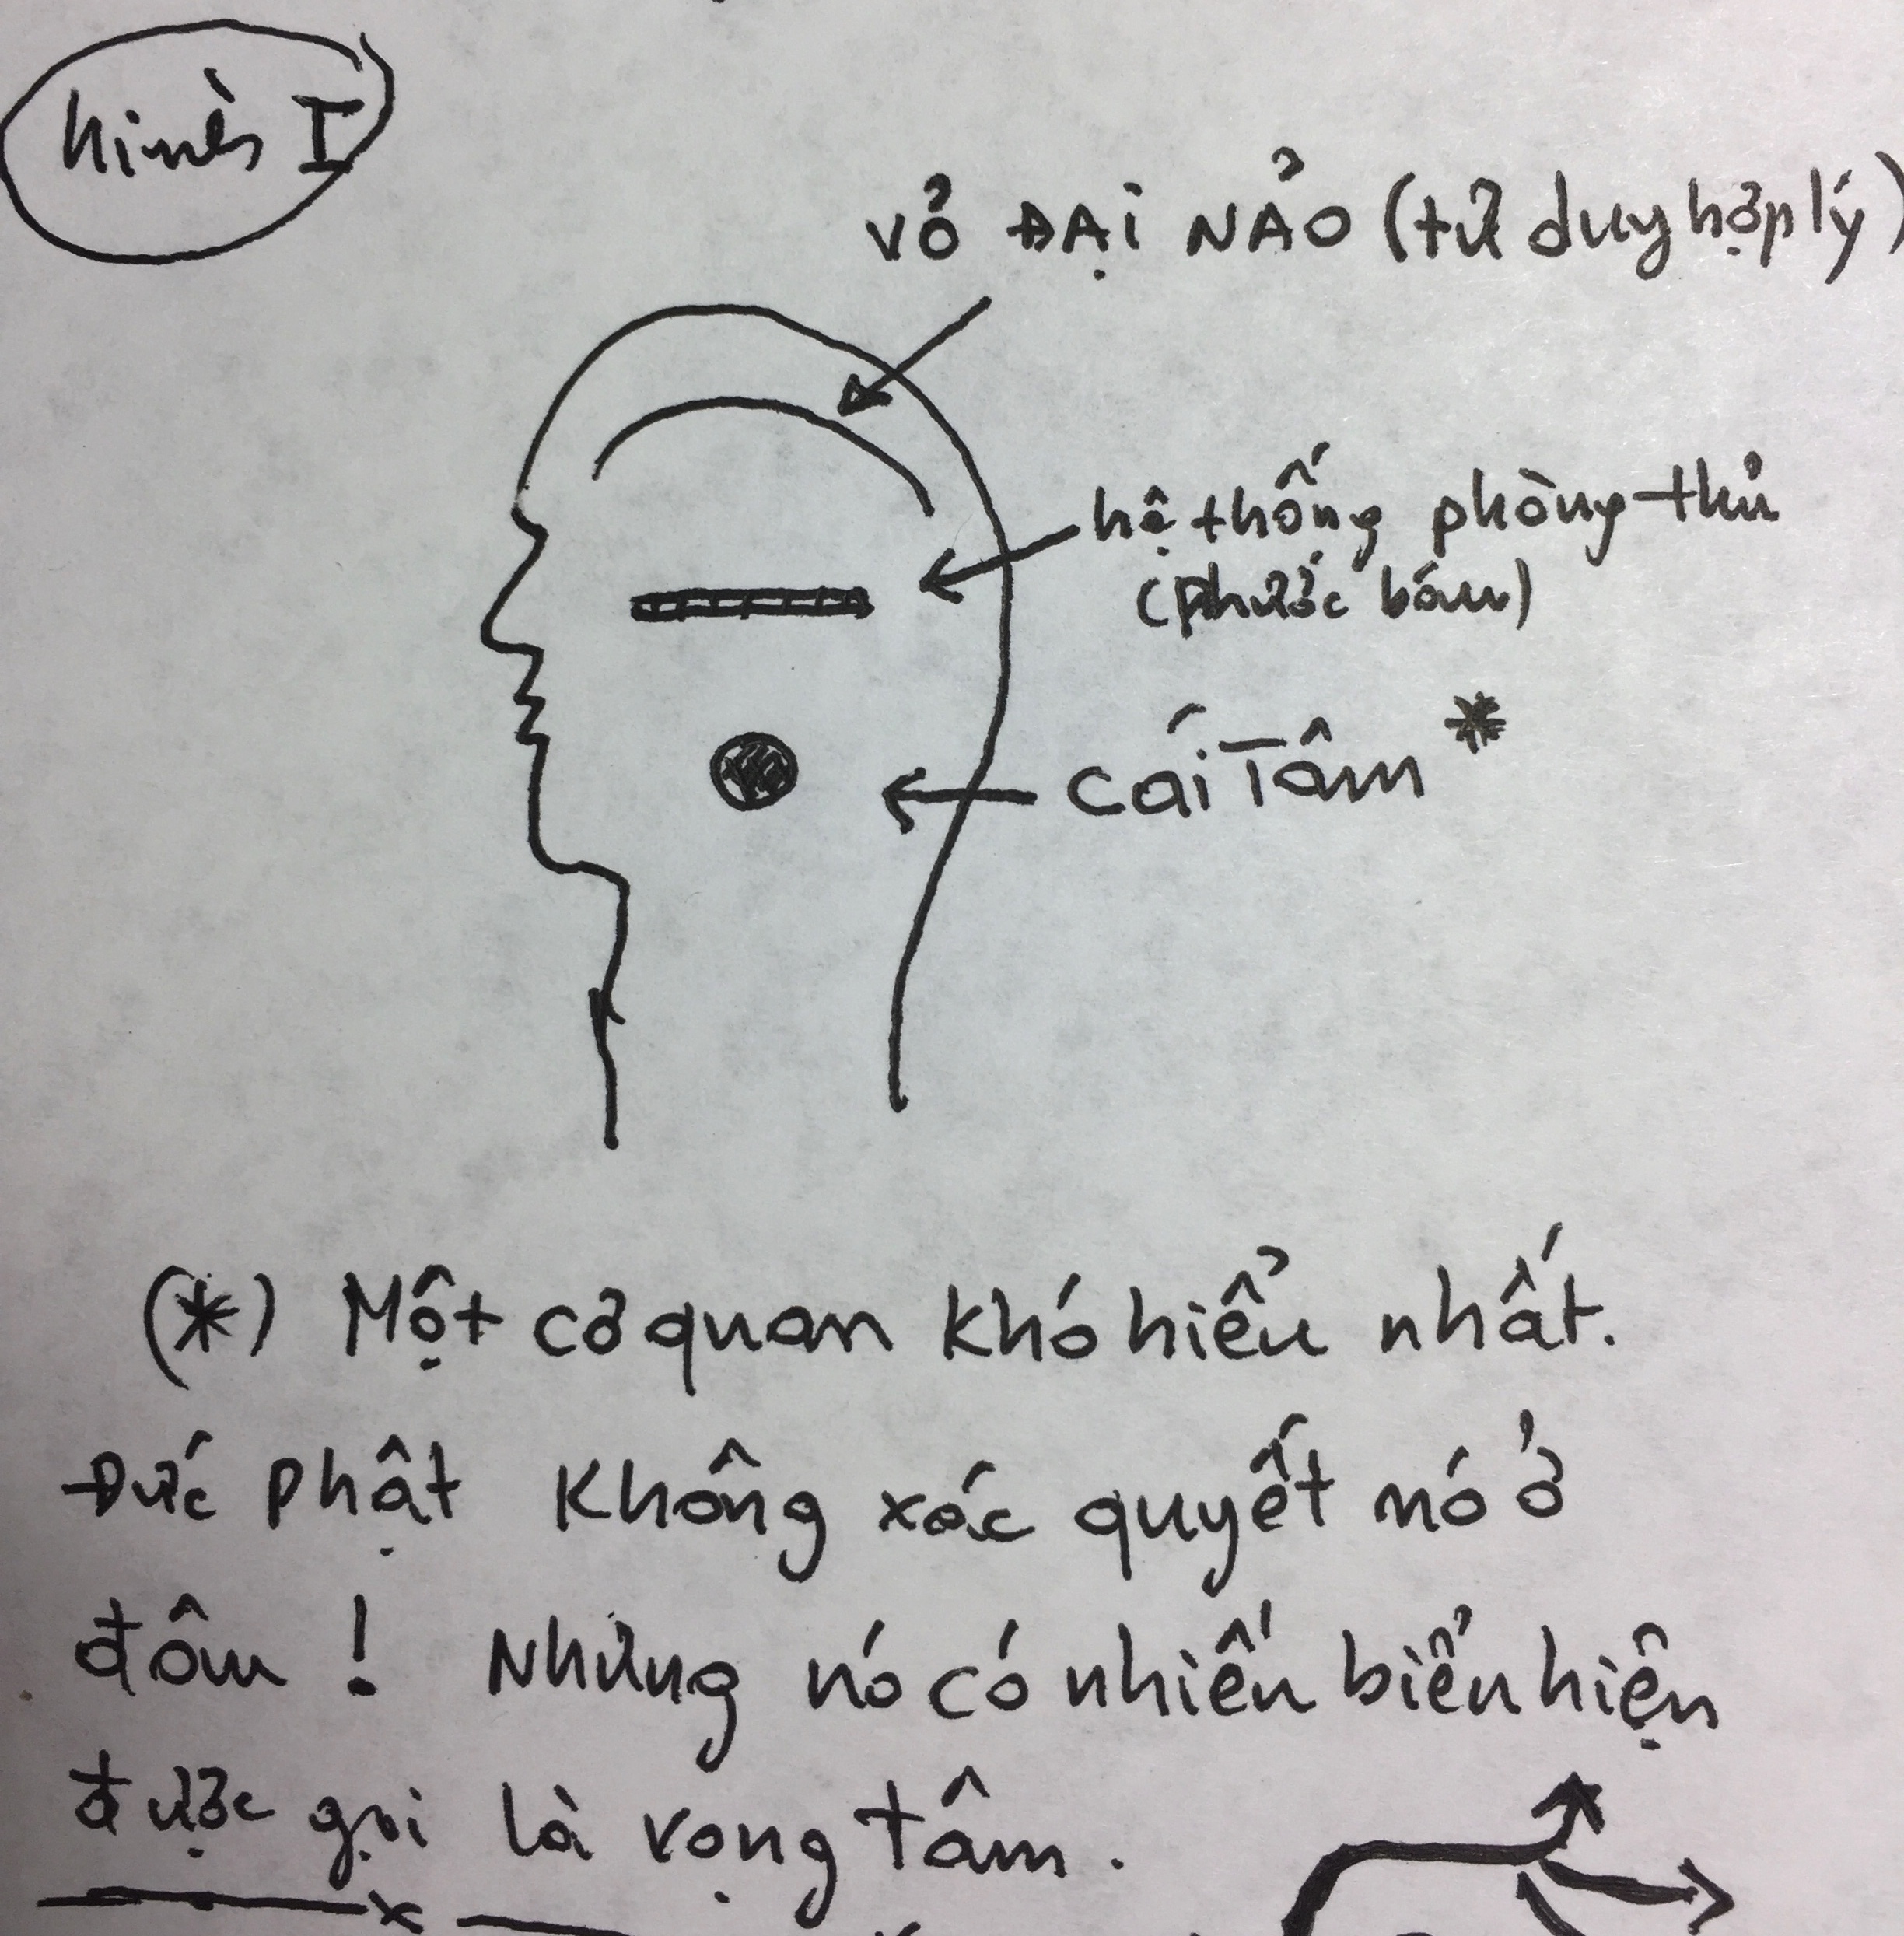 hình I
VỎ ĐẠI NÃO (tư duy hợp lý)
hệ thống phòng thủ
(Phước báu)
Cái Tâm *
(*) Một cơ quan khó hiểu nhất.
Đức Phật Không xác quyết nó ở
đâu! Nhưng nó có nhiều biểu hiện
được gọi là vọng tâm.